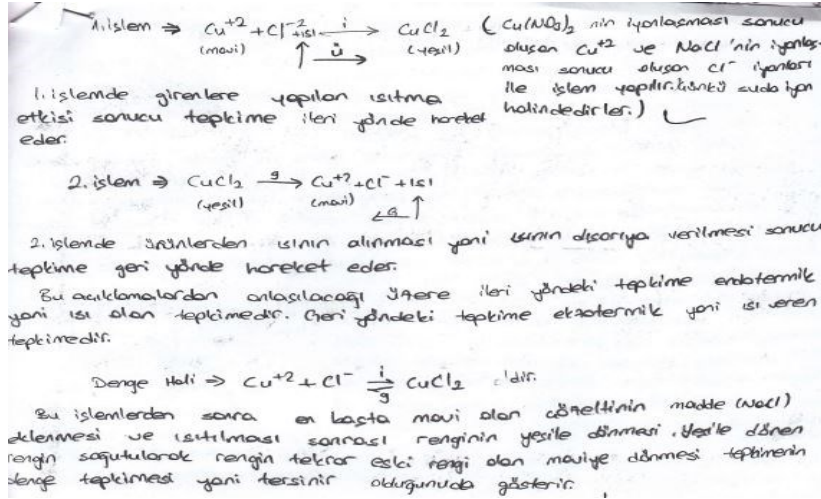 1. işlem ⇒ Cu⁺² + Cl⁻² +ısı —i→ CuCl₂ (Cu(NO₃)₂ nin iyonlaşması sonucu
(mavi) ↑ ü→ (yeşil) oluşan Cu⁺² ve NaCl'nin iyonlaş-
ması sonucu oluşan Cl⁻ iyonları
ile işlem yapılır. Çünkü suda iyon
halindedirler.)
1. işlemde girenlere yapılan ısıtma
etkisi sonucu tepkime ileri yönde hareket
eder.
2. işlem ⇒ CuCl₂ —g→ Cu⁺² + Cl⁻ + ısı
(yeşil) (mavi)
2. işlemde ürünlerden ısının alınması yani ısının dışarıya verilmesi sonucu
tepkime geri yönde hareket eder.
Bu açıklamalardan anlaşılacağı üzere ileri yöndeki tepkime endotermik
yani ısı alan tepkimedir. Geri yöndeki tepkime ekzotermik yani ısı veren
tepkimedir.
Denge Hali ⇒ Cu⁺² + Cl⁻ i⇌g CuCl₂ 'dir.
Bu işlemlerden sonra en başta mavi olan çözeltinin madde (NaCl)
eklenmesi ve ısıtılması sonrası renginin yeşile dönmesi. Yeşile dönen
rengin soğutularak rengin tekrar eski rengi olan maviye dönmesi tepkimenin
denge tepkimesi yani tersinir olduğunuda gösterir.